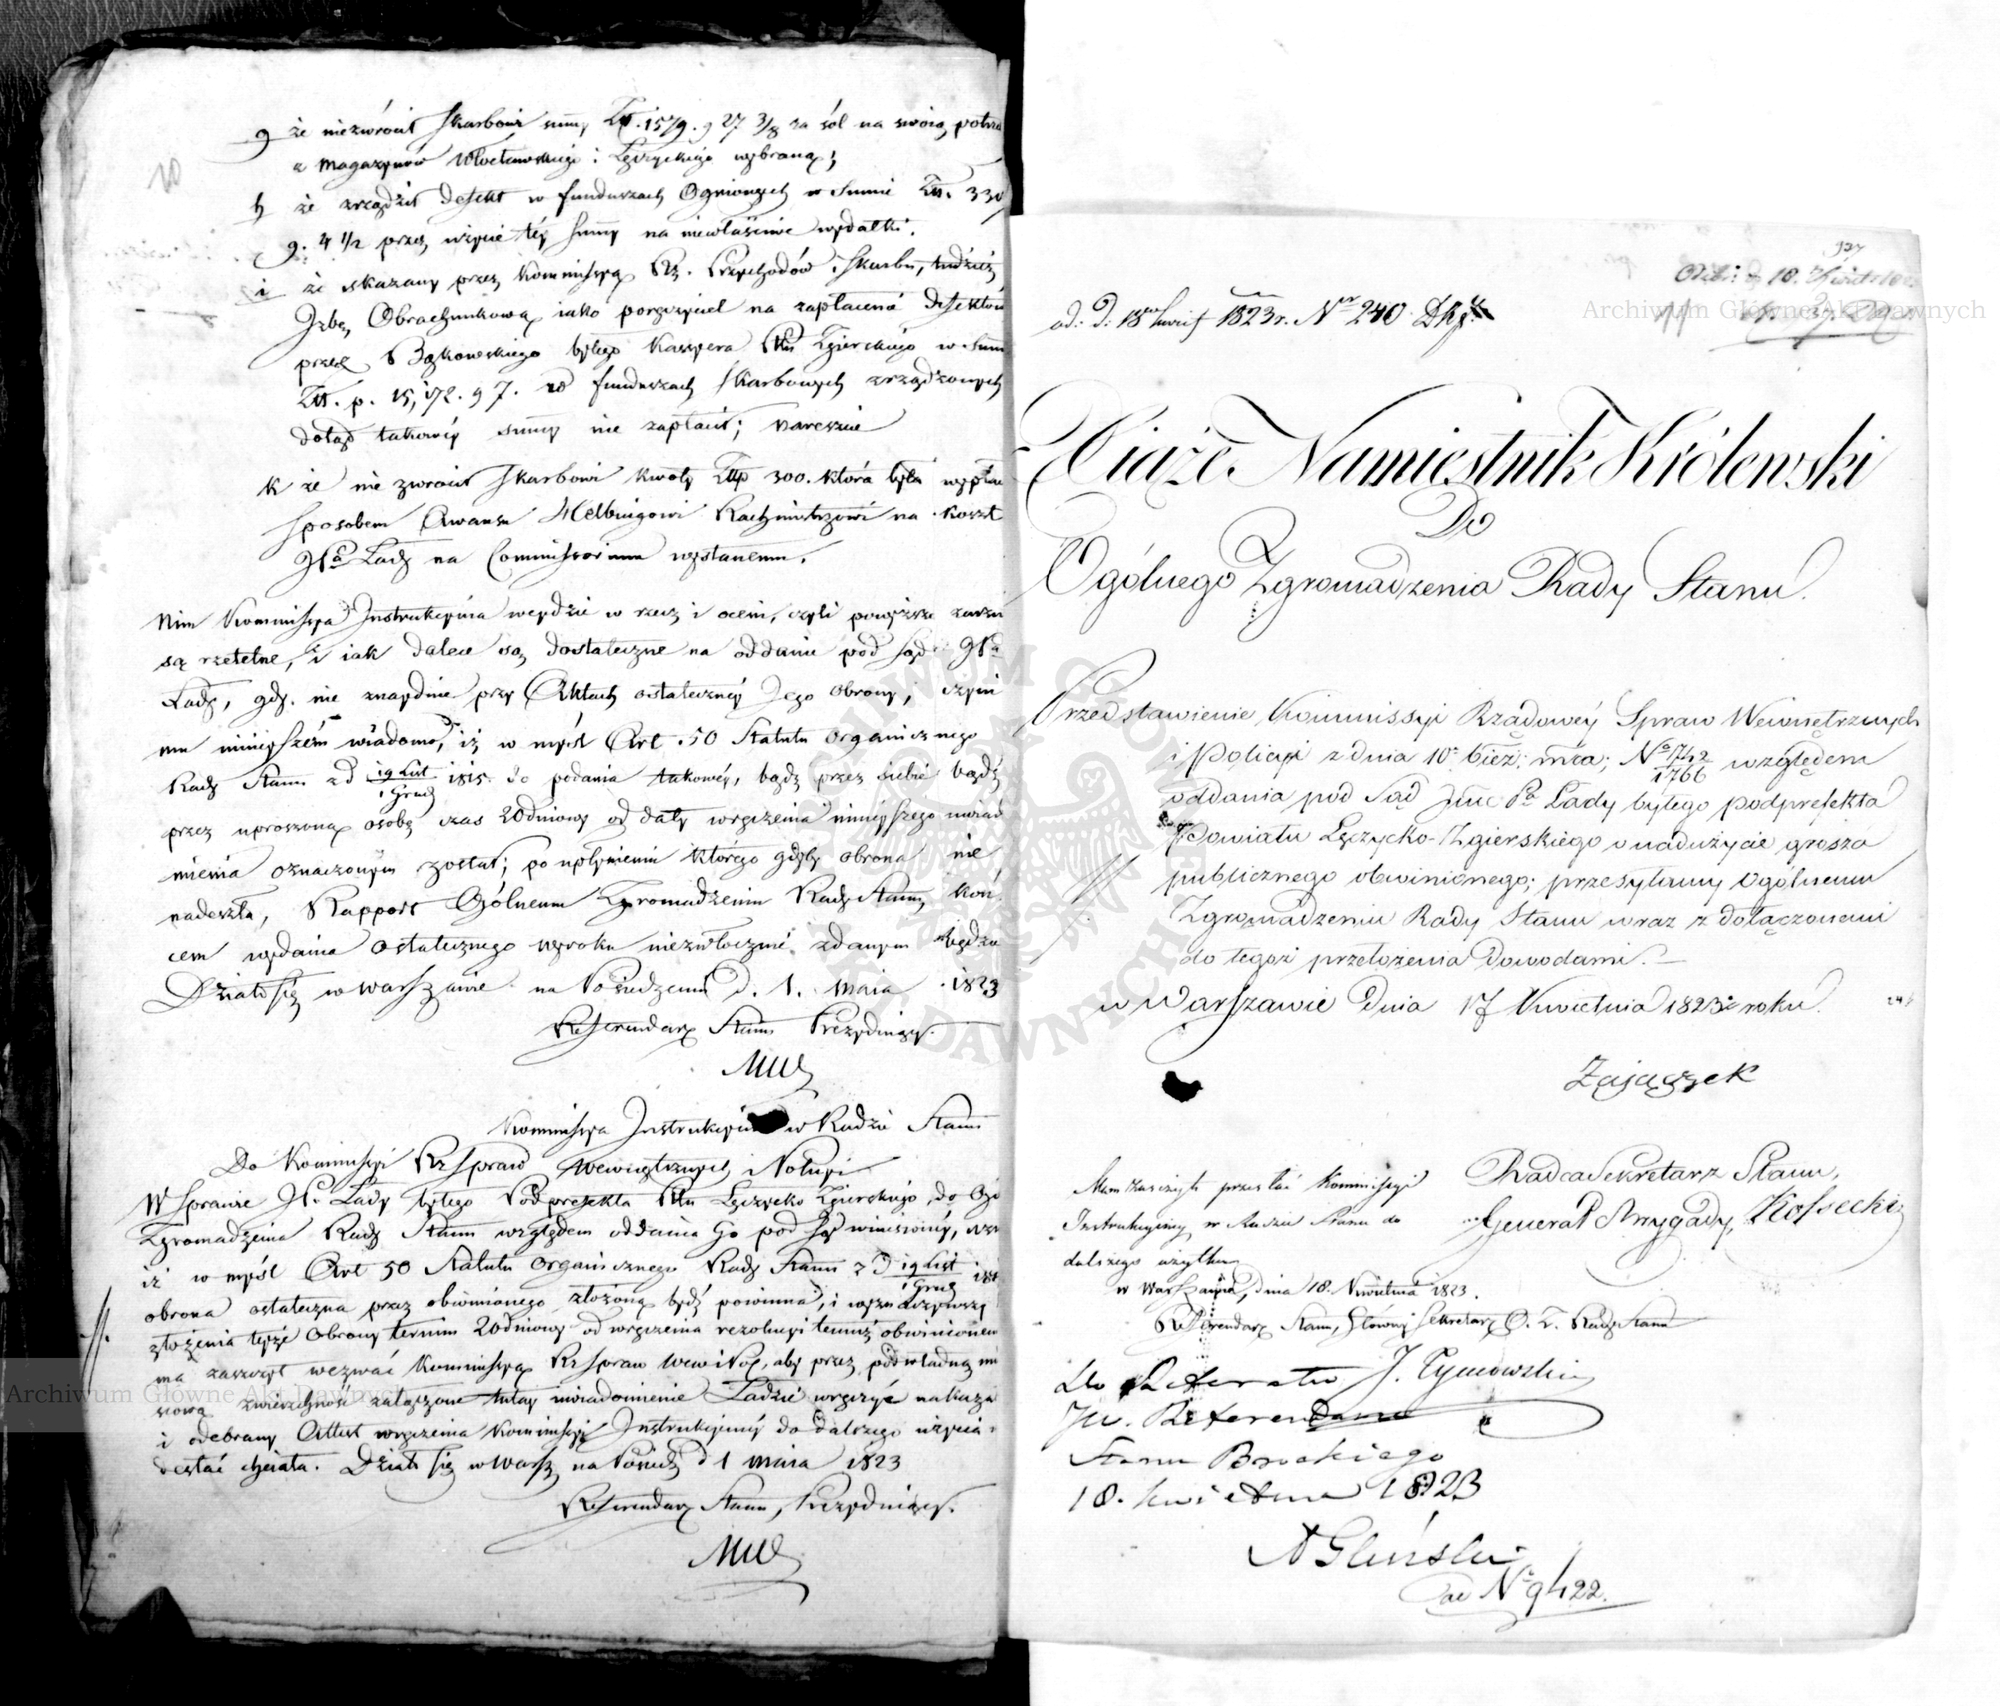 g że niezwrócił Skarbowi summy Złt. 1579. g 27 3/8 za sól na swoią potrz
z Magazynów Włocławskiego i Łęczyckiego wybraną;
h że zrządził defekt w funduszach Ogniowych w Summie Złt. 330
g. 4 1/2 przez użycie téy summy na niewłaściwe wydatki.
i że skazany przez Kommissyą Rz. Przychodów i Skarbu, tudzież
Izbę Obrachunkową iako poręczyciel na zapłacenie defektów
przez Bąkowskiego byłego Kassyera Pttu Zgierskiego w Sum
Złt. p. 15,172. g 7. w funduszach Skarbowych zrządzonych
dotąd takowéy summy nie zapłacił; nareszcie
k że nie zwrócił Skarbowi kwoty Złp 300. która była wypła
sposobem Awansu Helbingowi Rachmistrzowi na koszt
JPa Lady na Commissorium wysłanemu.
Nim Kommissya Instrukcyina weydzie w rzecz i oceni, czyli powyższe zarzu
są rzetelne, i iak dalece są dostateczne na oddanie pod sąd JPa
Lady, gdy nie znayduie przy Aktach ostateczney Jego obrony; czyni
mu ninieyszém wiadomo, iż w myśl Art. 50 Statutu organicznego
Rady Stanu z d 19 List / 1 Grud 1815. do podania takowéy, bądź przez siebie bądź
przez uproszoną osobę czas 20dniowy od daty wręczenia ninieyszego uwiad
mienia oznaczonym został; po upłynieniu którego gdyby obrona nie
nadeszła, Rapport Ogólnemu Zgromadzeniu Rady Stanu, koń
cem wydania ostatecznego wyroku niezwłocznie zdanym będzie
Działo się w Warszawie na Posiedzeniu d. 1. Maia 1823
Referendarz Stanu Prezyduiący.
Kommissya Instrukcyina w Radzie Stanu
Do Kommissyi Rz Spraw Wewnętrznych i Policyi
W sprawie JP. Lady byłego Podprefekta Pttu Łęczycko Zgierskiego do Ogó
Zgromadzenia Rady Stanu względem oddania Go pod sąd wniesionéy,
iż w myśl Art 50 Statutu organicznego Rady Stanu z d 19 List / 1 Grud 181
obrona ostateczna przez obwinionego złożoną bydź powinna, i wyznaczywszy
złożenia teyże Obrony termin 20dniowy od wręczenia rezolucyi temuż obwinionemu
ma zaszczyt wezwać Kommissyą Rz Spraw Wew i Pol, aby przez podwładną mi
scową zwierzchność załączone tutay uwiadomienie Ladzie wręczyć nakaza
i odebrany Attest wręczenia Kommissyi Instrukcyinéy do dalszego użycia
dostać chciała. Działo się w Warsz na Posiedz d 1 Maia 1823
Referendarz Stanu, Prezyduiący.
ad: D: 18 Kwiet 1823 r. Nr 240
Xiąże Namiestnik Królewski
Do
Ogólnego Zgromadzenia Rady Stanu.
Przedstawienie Kommissyi Rządowéy Spraw Wewnętrznych
i Policyi z dnia 10o bież: mca; No 742/1766 względem
oddania pod Sąd JmcPa Lady byłego podprefekta
Powiatu Łęczycko-Zgierskiego o nadużycie grosza
publicznego obwinionego; przesyłamy Ogólnemu
Zgromadzeniu Rady Stanu wraz z dołączonemi
do tegoż przełożenia Dowodami.
w Warszawie Dnia 17 Kwietnia 1823 roku.
Zajączek
Radca Sekretarz Stanu,
Generał Brygady, Kossecki
Mam zaszczyt przesłać Kommissyi
Instrukcyinéy w Radzie Stanu do
dalszego użytku
w Warszawie, dnia 18. Kwietnia 1823.
Referendarz Stanu, Główny Sekretarz O. Z. Rady Stanu
J. Tymowski
Do Referatu
JW. Referendarza
Stanu Brockiego
18. kwietnia 1823
A Gliński
ad No 9422.
Archiwum Główne Akt Dawnych
Archiwum Główne Akt Dawnych
ARCHIWUM GŁÓWNE AKT DAWNYCH